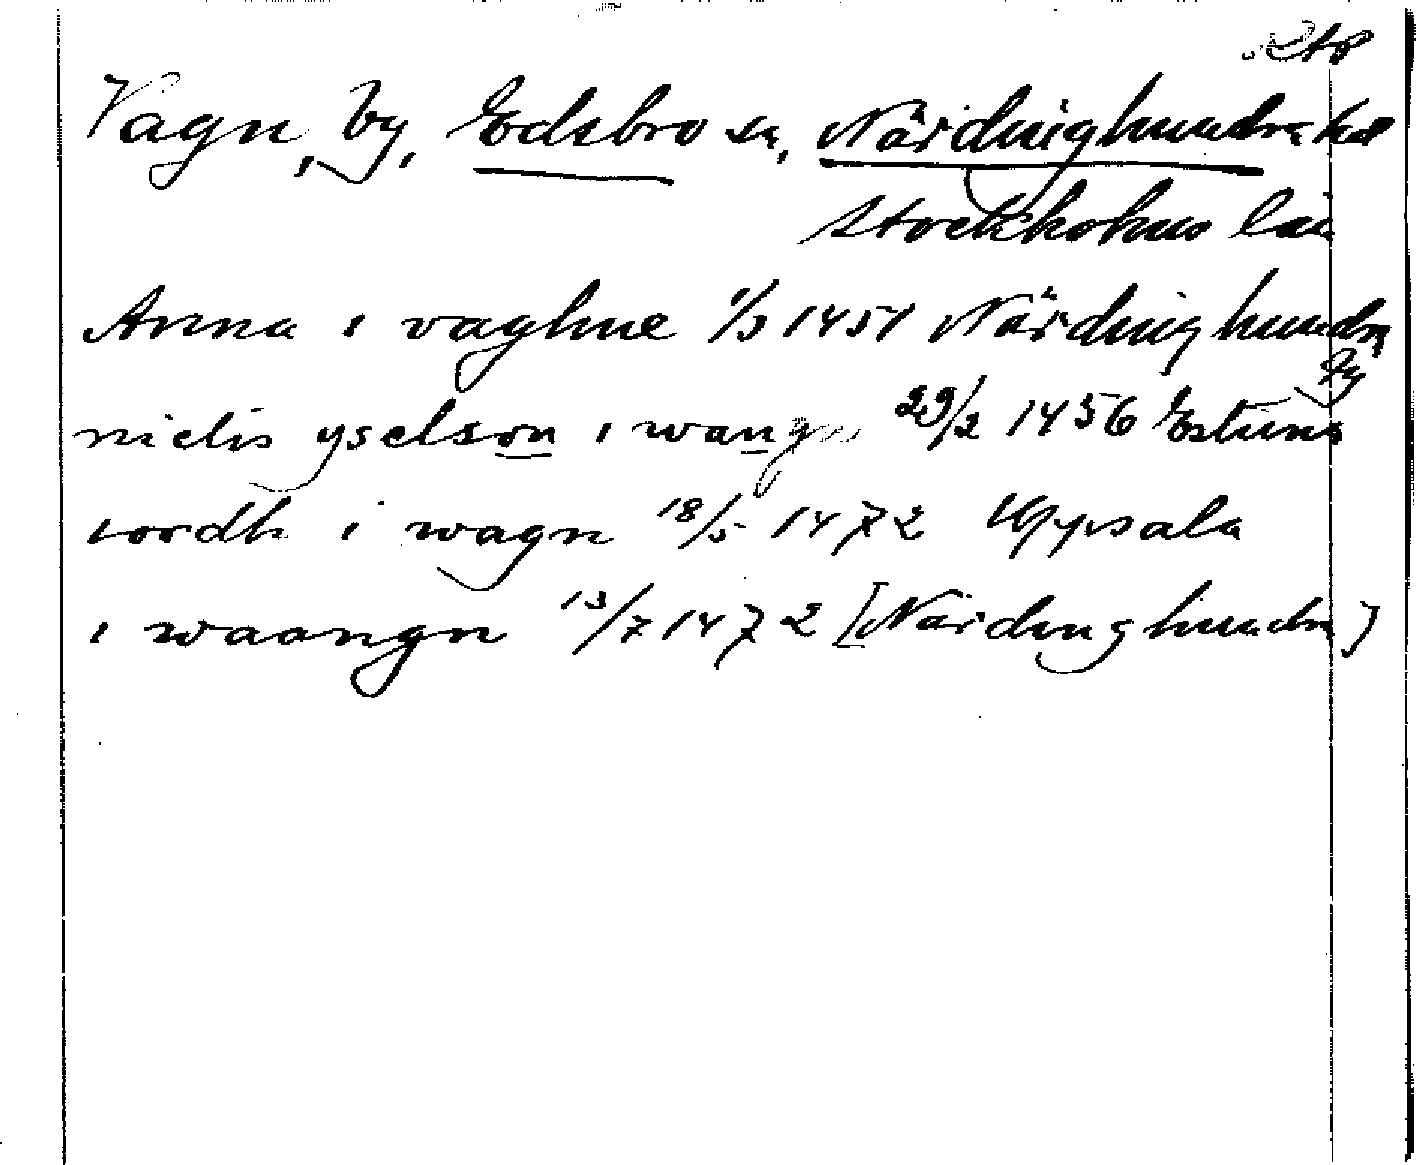 Vagn, by, Edsbro sn, Närdinghundra hd
Stockholms län
Anna i vaghne 1/3 1451 Närdinghundra
nielis yselson i wangn 29/2 1456 Estuna
tordh i wagn 18/5 1472 Uppsala
i waangn 13/7 1472 [Närdinghundra]